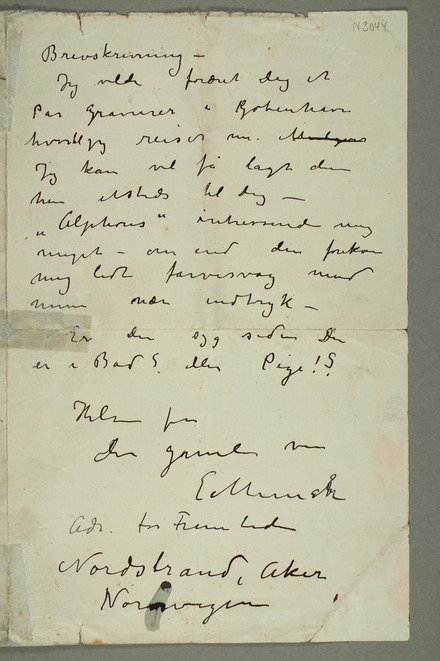 N 3044
Brevskrivning –
Jeg vilde foræret Dig et
Par Gravurer i Kjøbenhavn
hvortil jeg reiser nu.
Jeg kan vel få lagt dem
hen etsteds til Dig –
"Alphons" intressende mig
meget – om end den forekom
mig lidt farvesvag mod
min indtryk –
Er Du syg siden Du
er i Bad? eller Pige!?
Hilsen fra
Din gamle ven
E Munch
Adr. for Fremtiden
Nordstrand, Aker
Norwegen